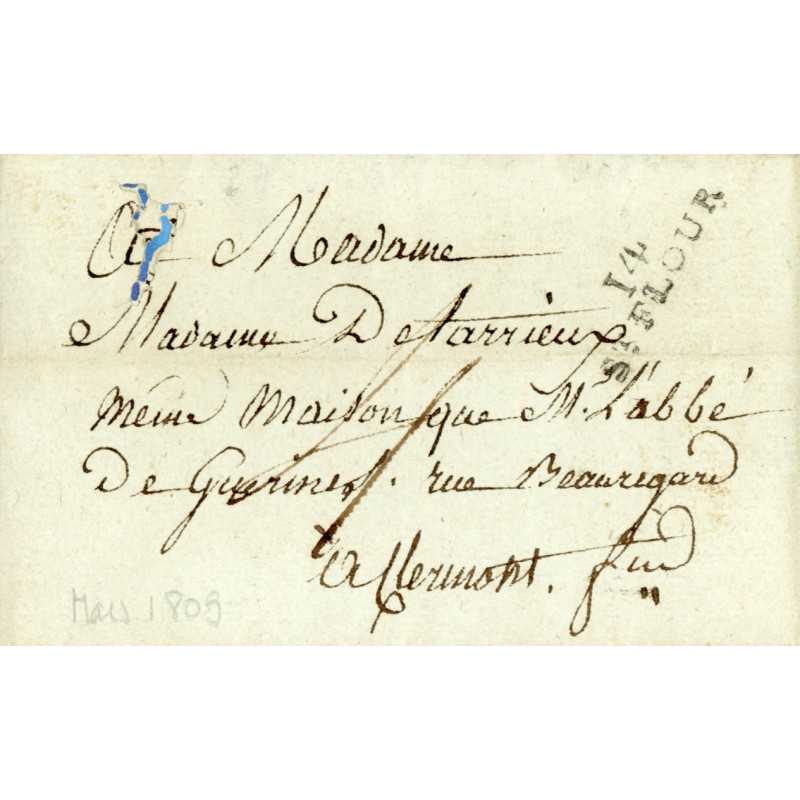 A Madame
Madame Detarrieux
même maison que Mr. L'abbé
De Guerines. rue Beauregard
A Clermont. fnd
14
ST. FLOUR
Mars 1809